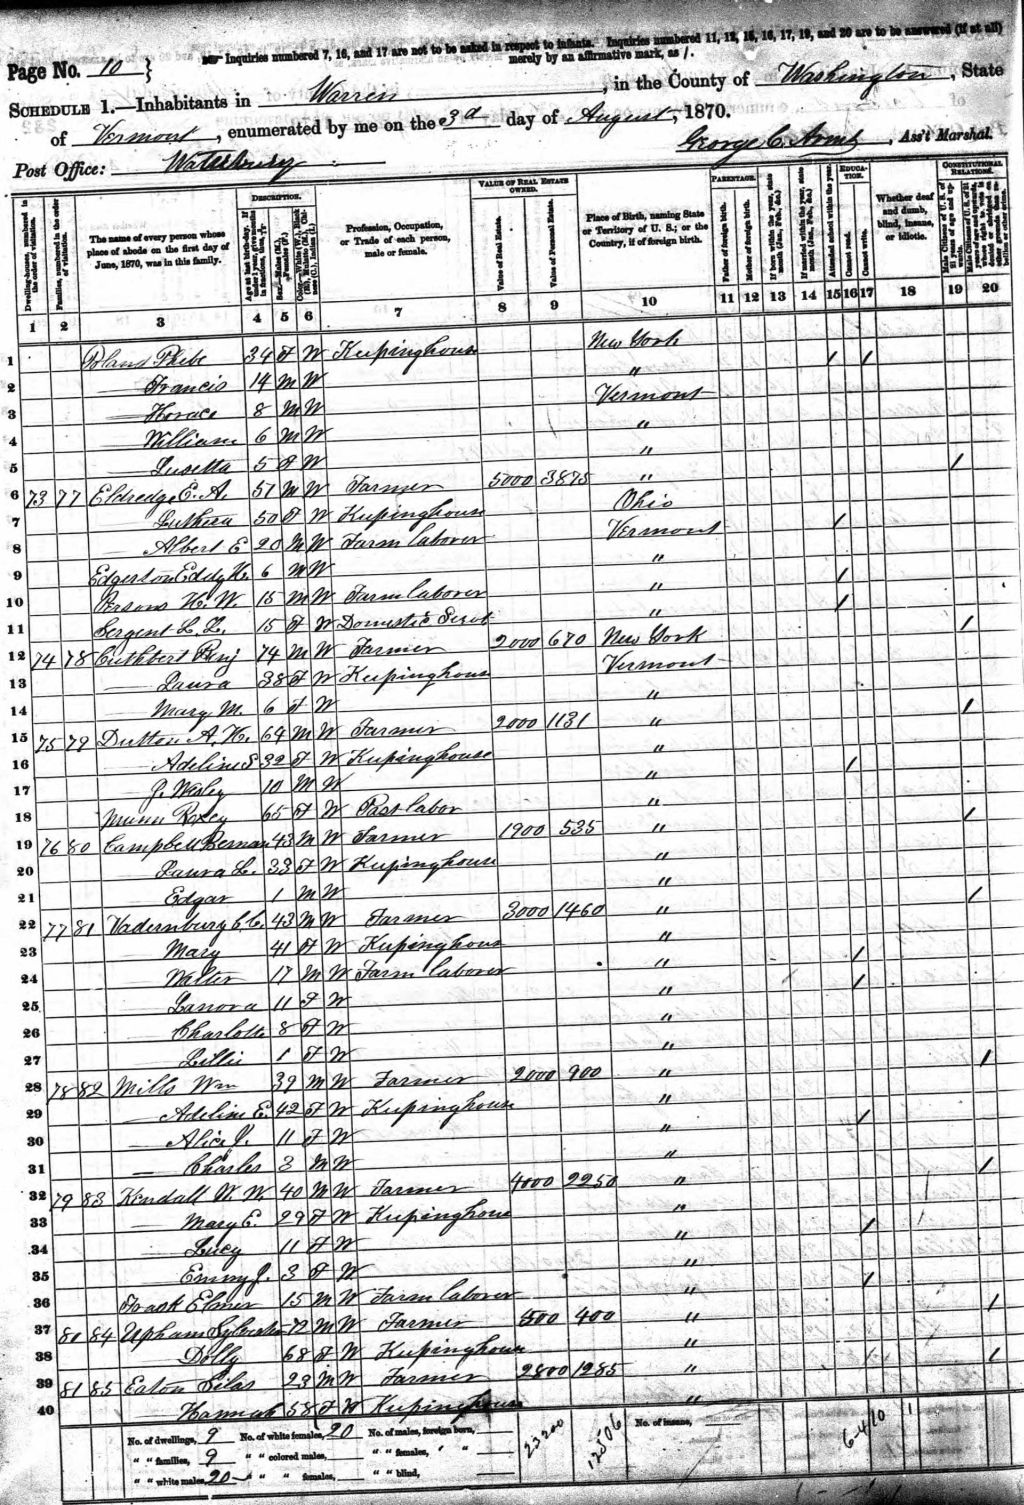 ☞ Inquiries numbered 7, 16, and 17 are not to be asked in respect to infants. Inquiries numbered 11, 12, 15, 16, 17, 19, and 20 are to be answered (if at all)
merely by an affirmative mark, as /.
Page No. 10
Schedule 1.—Inhabitants in Warren, in the County of Washington, State
of Vermont, enumerated by me on the 3d day of August, 1870.
Post Office: Waterbury
George C. , Ass't Marshal.
Dwelling-houses, numbered in the order of visitation.
Families, numbered in the order of visitation.
The name of every person whose place of abode on the first day of June, 1870, was in this family.
Description.
Age at last birth-day. If under 1 year, give months in fractions, thus,
Sex.—Males (M.), Females (F.)
Color.—White (W.), Black (B.), Mulatto (M.), Chinese (C.), Indian (I.)
Profession, Occupation, or Trade of each person, male or female.
Value of Real Estate owned.
Value of Real Estate.
Value of Personal Estate.
Place of Birth, naming State or Territory of U. S.; or the Country, if of foreign birth.
Parentage.
Father of foreign birth.
Mother of foreign birth.
If born within the year, state month (Jan., Feb., &c.)
If married within the year, state month (Jan., Feb., &c.)
Education.
Attended school within the year.
Cannot read.
Cannot write.
Whether deaf and dumb, blind, insane, or idiotic.
Constitutional Relations.
1 2 3 4 5 6 7 8 9 10 11 12 13 14 15 16 17 18 19 20
1 Poland Phebe 34 F W Keepinghouse New York
2 — Francis 14 M W " / /
3 — Horace 8 M W Vermont
4 — William 6 M W "
5 — Lusetta 5 F W "
6 73 77 Eldredge E. A. 51 M W Farmer 5000 3875 " /
7 — 50 F W Keepinghouse Ohio
8 — Albert E 20 M W Farm laborer Vermont /
9 Edgerton Eddy H. 6 M W "
10 Persons H. W. 15 M W Farm laborer " /
11 Sergent L. L. 15 F W Domestic Servt " /
12 74 78 Cuthbert Benj 74 M W Farmer 2000 670 New York /
13 — Laura 38 F W Keepinghouse Vermont
14 — Mary M. 6 F W "
15 75 79 Dutton A. H. 64 M W Farmer 2000 1131 " /
16 — Adeline S 32 F W Keepinghouse "
17 J. Wesley 10 M W " /
18 Roxey 65 F W Past labor "
19 76 80 Campbell Hernan 43 M W Farmer 1900 535 " /
20 — Laura L. 33 F W Keepinghouse "
21 — Edgar 1 M W "
22 77 81 Vadernburg C. C. 43 M W Farmer 3000 1460 " /
23 Mary 41 F W Keepinghous "
24 Walter 17 M W Farm laborer " /
25 Lanora 11 F W " /
26 Charlotte 8 F W "
27 — Lillie 1 F W "
28 78 82 Mills Wm 39 M W Farmer 2000 900 " /
29 — Adeline E. 42 F W Keepinghouse "
30 — Alice J. 11 F W " /
31 — Charles 3 M W "
32 79 83 Kendall W. W. 40 M W Farmer 4000 2250 " /
33 — Mary E. 29 F W Keepinghous "
34 — Lucy 11 F W " /
35 — Emmy J. 3 F W "
36 Trask Elmer 15 M W Farm laborer " /
37 80 84 Upham Sylvester 72 M W Farmer 500 400 " /
38 Dolly 68 F W Keepinghouse "
39 81 85 Eaton Silas 23 M W Farmer 2800 1285 " /
40 — Hannah 58 F W Keepinghouse "
No. of dwellings, 9 No. of white females, 20 No. of males, foreign born, 23200 12506 No. of insane, 6-4 10 1
" " families, 9 " " colored males, " " females, " "
" " white males, 20 " " females, " " blind,